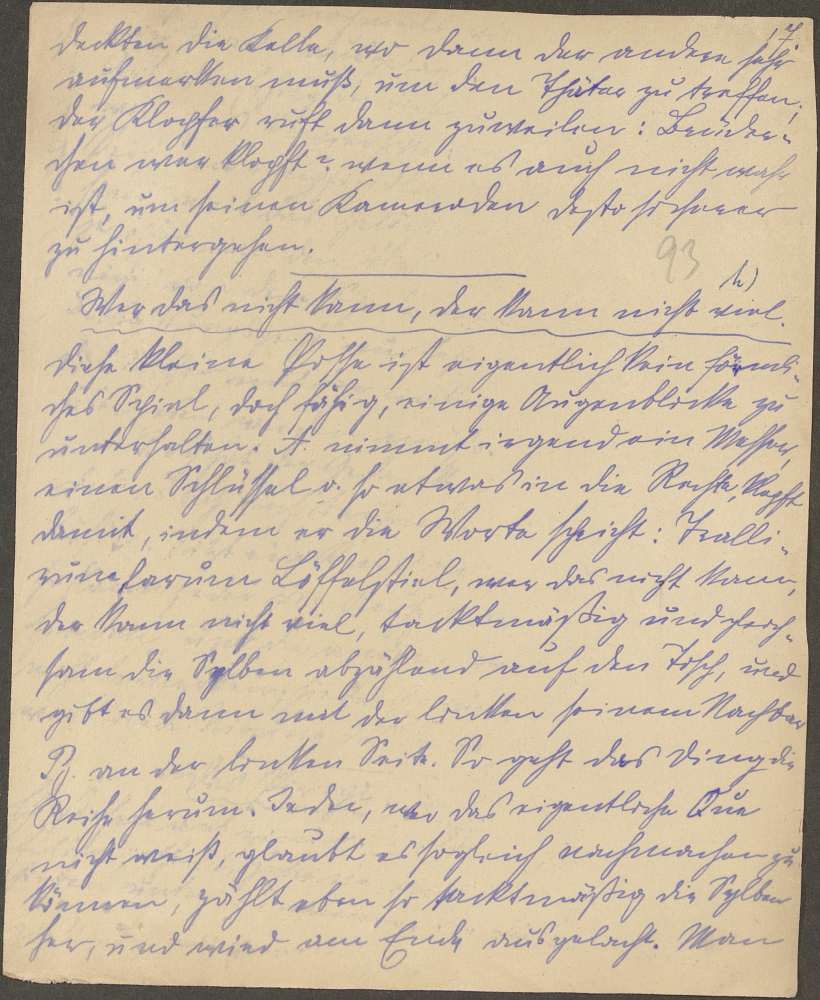 17
deckten die Kelle, wo dann der andere sehr
aufmerken muß, um den Thäter zu treffen;
der Klopfer ruft dann zuweilen: Brüder-
chen wer klopft? wenn es auch nicht wahr
ist, um seinen Kameraden desto sicherer
zu hintergehen.
93
h)
Wer das nicht kann, der kann nicht viel.
Diese kleine Posse ist eigentlich kein förmli-
ches Spiel, doch fähig, einige Augenblicke zu
unterhalten. A. nimmt irgend ein Messer,
einen Schlüssel o. so etwas in die Rechte, klopft
damit, indem er die Worte spricht: Tralli-
rum larum Löffelstiel, wer das nicht kann,
der kann nicht viel, tacktmäßig und gleich-
sam die Sylben abzählend auf den Tisch, und
gibt es dann mit der linken seinem Nachbar
B. an der linken Seite. So geht das Ding die
Reihe herum. Jeder, wo das eigentliche Que
nicht weiß, glaubt es sogleich nachmachen zu
können, zählt eben so tacktmäßig die Sylben
her, und wird am Ende ausgelacht. Man